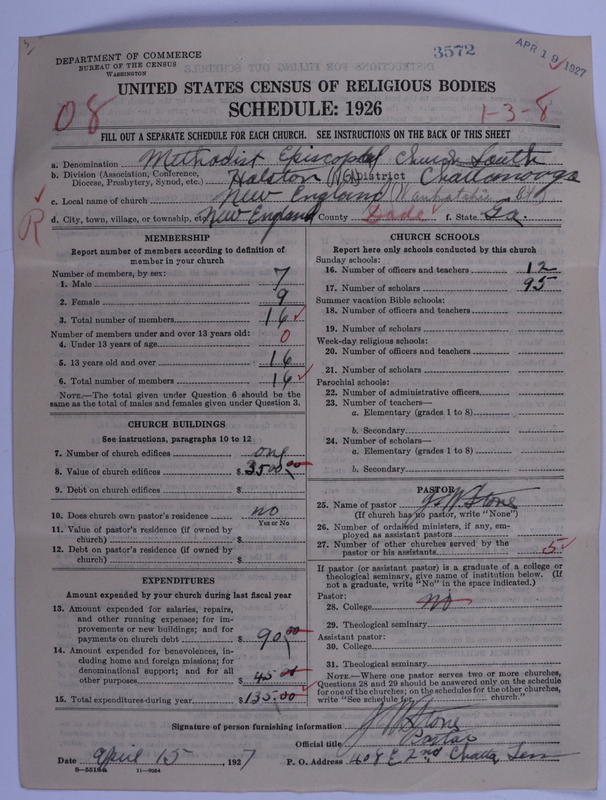 3572
APR 19 1927
DEPARTMENT OF COMMERCE
BUREAU OF THE CENSUS
WASHINGTON
UNITED STATES CENSUS OF RELIGIOUS BODIES
SCHEDULE: 1926
08
1-3-8
FILL OUT A SEPARATE SCHEDULE FOR EACH CHURCH. SEE INSTRUCTIONS ON THE BACK OF THIS SHEET
a. Denomination Methodist Episcopal Church South
b. Division (Association, Conference, Diocese, Presbytery, Synod, etc.) Holston District Chattanooga
c. Local name of church New England
d. City, town, village, or township, New England County Dade f. State Ga.
R
MEMBERSHIP
Report number of members according to definition of
member in your church
Number of members, by sex:
1. Male 7
2. Female 9
3. Total number of members 16
Number of members under and over 13 years old:
4. Under 13 years of age 0
5. 13 years old and over 16
6. Total number of members 16
NOTE.—The total given under Question 6 should be
same as the total of males and females given under Question 3.
CHURCH BUILDINGS
See instructions, paragraphs 10 to 12
7. Number of church edifices one
8. Value of church edifices $ 3500.00
9. Debt on church edifices $
10. Does church own pastor's residence no
Yes or No
11. Value of pastor's residence (if owned by
church) $
12. Debt on pastor's residence (if owned by
church) $
EXPENDITURES
Amount expended by your church during last fiscal year
13. Amount expended for salaries, repairs,
and other running expenses; for im-
provements or new buildings; and for
payments on church debt $ 90.00
14. Amount expended for benevolences, in-
cluding home and foreign missions; for
denominational support; and for all
other purposes $ 45.00
15. Total expenditures during year $ 135.00
CHURCH SCHOOLS
Report here only schools conducted by this church
Sunday schools:
16. Number of officers and teachers 12
17. Number of scholars 95
Summer vacation Bible schools:
18. Number of officers and teachers
19. Number of scholars
Week-day religious schools:
20. Number of officers and teachers
21. Number of scholars
Parochial schools:
22. Number of administrative officers
23. Number of teachers—
a. Elementary (grades 1 to 8)
b. Secondary
24. Number of scholars—
a. Elementary (grades 1 to 8)
b. Secondary
PASTOR
25. Name of pastor J. W. Stone
(If church has no pastor, write "None")
26. Number of ordained ministers, if any, em-
ployed as assistant pastors
27. Number of other churches served by the
pastor or his assistants 5
If pastor (or assistant pastor) is a graduate of a college or
theological seminary, give name of institution below. (If
not a graduate, write "No" in the space indicated.)
Pastor:
28. College no
29. Theological seminary
Assistant pastor:
30. College
31. Theological seminary
NOTE.—Where one pastor serves two or more churches,
Questions 28 and 29 should be answered only on the schedule
for one of the churches; on the schedules for the other churches,
write "See schedule for church."
Signature of person furnishing information J W Stone
Official title Pastor
Date April 15, 1927 P. O. Address 408 E 2nd Chatta, Tenn
8-5518a 11-9084